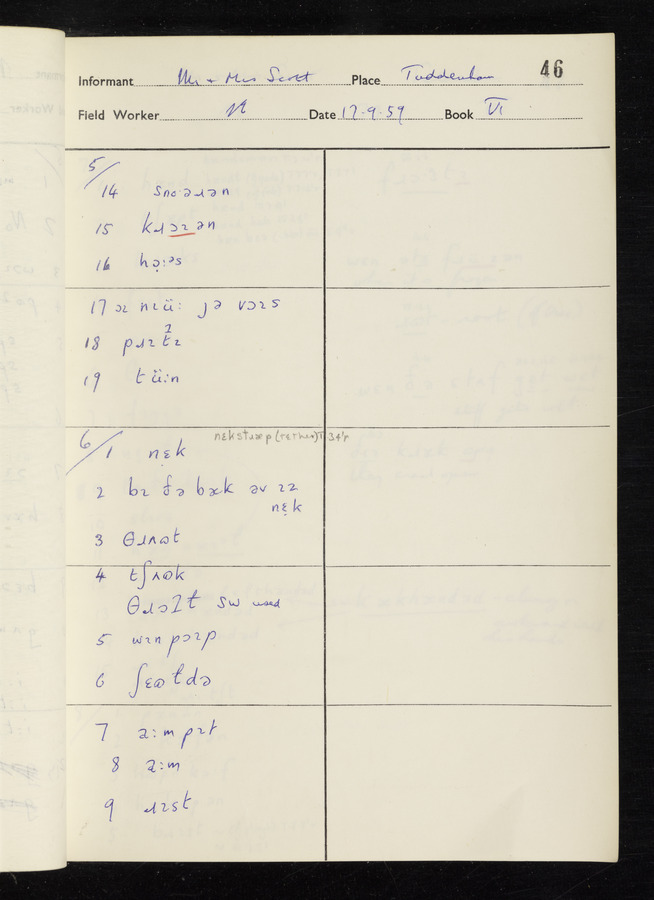 46
Informant Mr + Mrs Scott Place Tuddenham
Field Worker Date 17.9.59 Book VI
5/
14 snoˑəɹən
15 kɹɔɪən
16 hə̣:ᵊs
17 ɔɪ nɪü: jə vɔɪs
18 pɹɪtɪ
19 tü:n
6/1 nɛ̣k nɛkstɹæp (tether) T 34'r
2 bɪ ðə bæk əv ɪz
nɛ̣k
3 θɹʌɷt
4 tʃʌɷk
θɹɔʔt SW used
5 wɪnpɔɪp
6 ʃɛɷtdə
7 a:mpɪt
8 a:m
9 ɹɪst